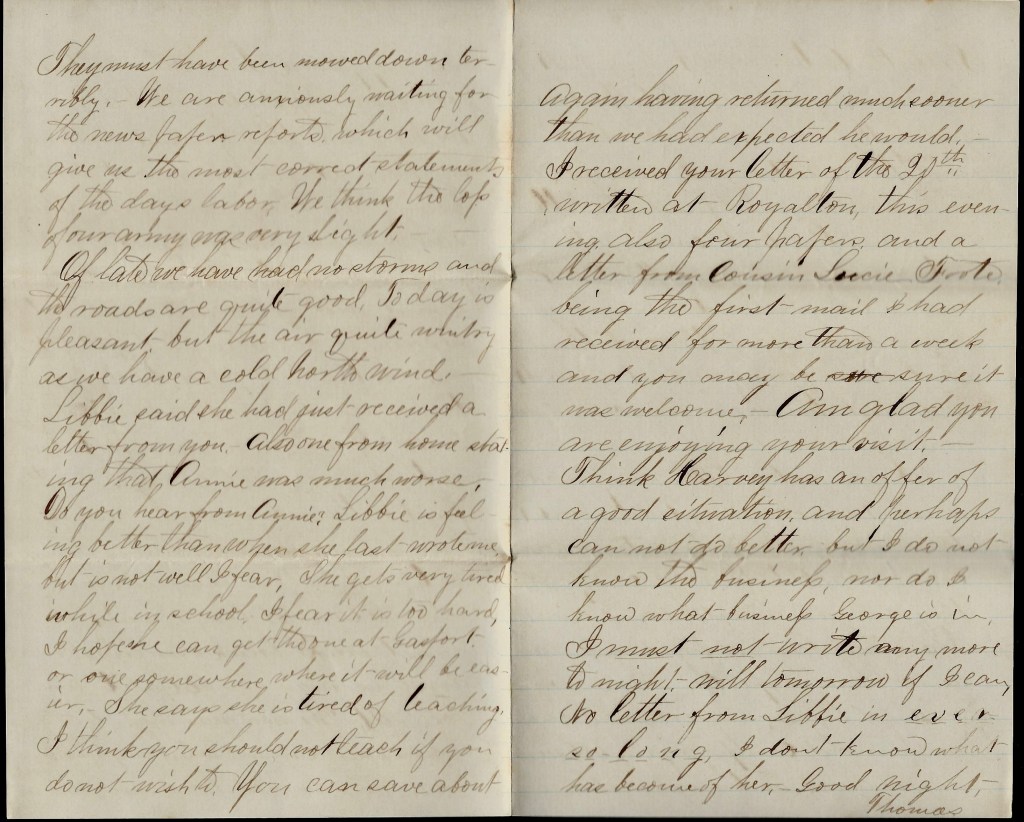 They must have been mowed down ter-
ribly. - We are anxiously waiting for
the news paper reports, which will
give us the most correct statements
of the days labor. We think the loss
of our army was very light. -
Of late we have had no storms and
the roads are quite good. To day is
pleasant but the air quite wintry
as we have a cold North wind. -
Libbie said she had just received a
letter from you. Also one from home stat-
ing that Annie was much worse.
Do you hear from Annie? Libbie is feel-
ing better than when she last wrote me
but is not well I fear, She gets very tired
while in school, I fear it is too hard,
I hope she can get the one at Gasport
or one somewhere where it will be eas-
ier, - She says she is tired of teaching.
I think you should not teach if you
do not wish to. You can save about
Again having returned much sooner
than we had expected he would. -
I received your letter of the 20th
written at Royalton, this even-
ing, also four papers, and a
letter from Cousin Lucie Foote,
being the first mail I had
received for more than a week
and you may be sure it
was welcome, - Am glad you
are enjoying your visit. -
Think Harvey has an offer of
a good situation, and perhaps
can not do better, but I do not
know the business, nor do I
know what business George is in,
I must not write any more
to night, will tomorrow if I can,
No letter from Libbie in ever
so long, I dont know what
has become of her, - Good night,
Thomas